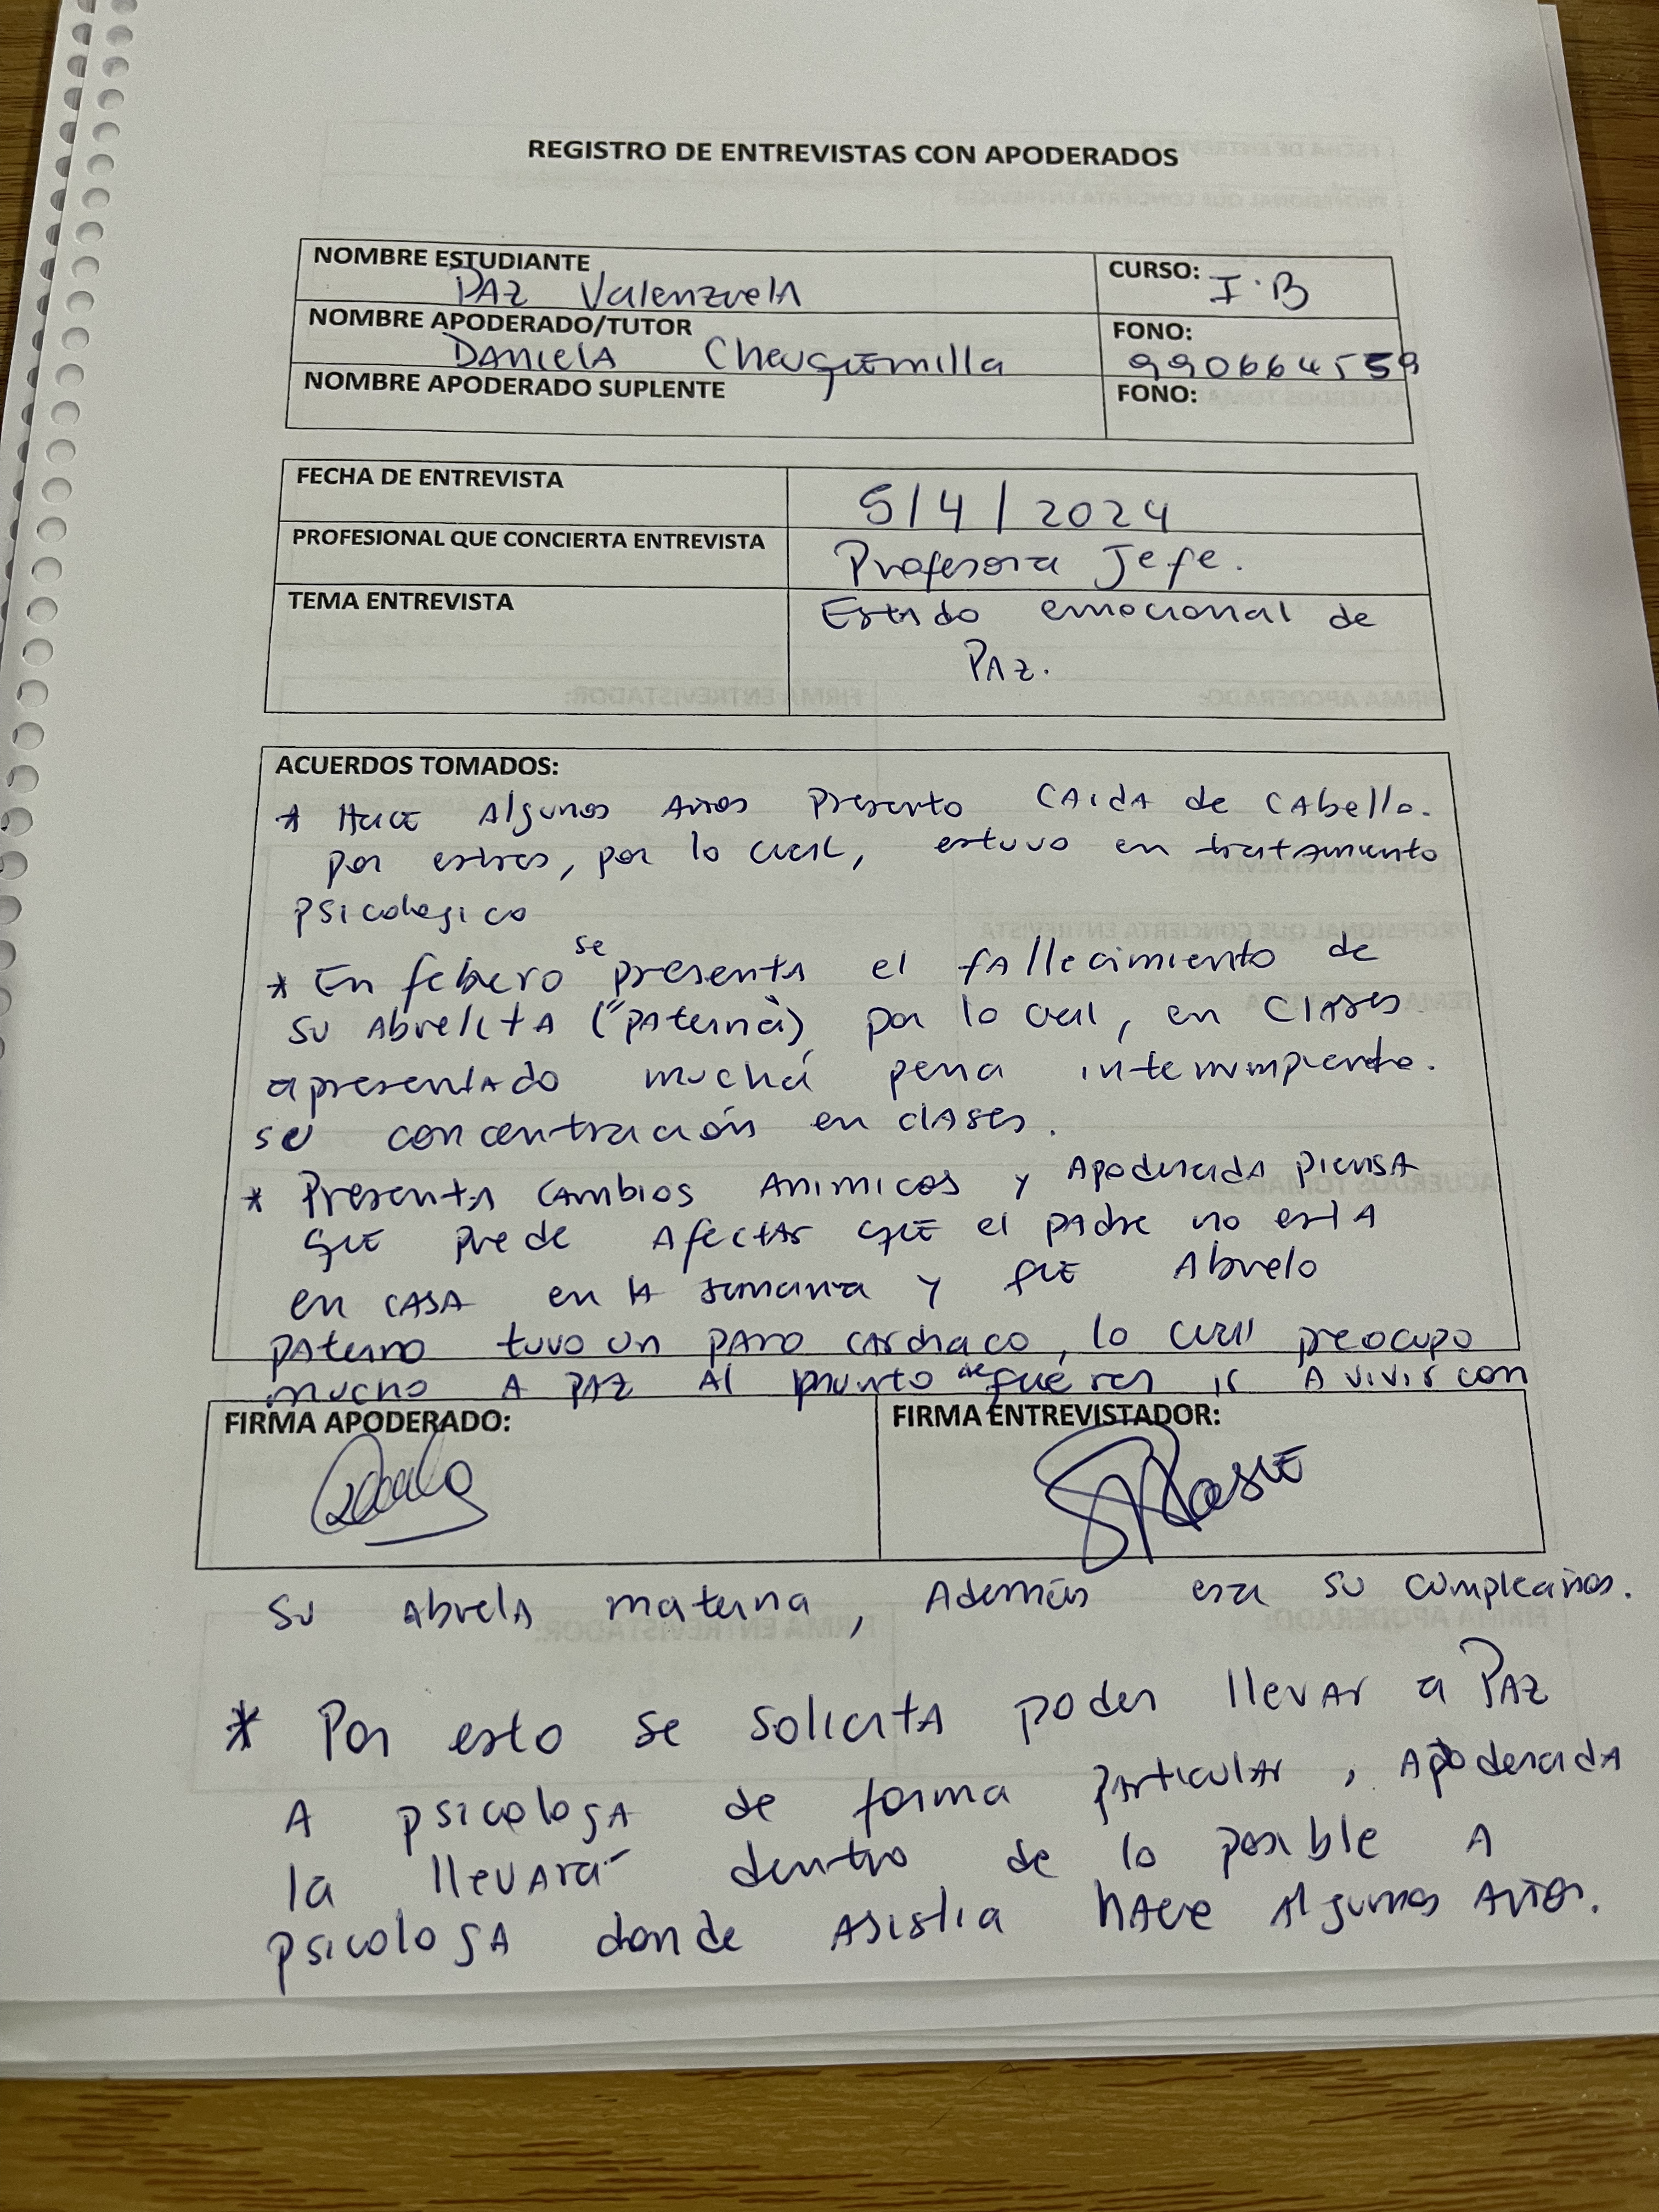 REGISTRO DE ENTREVISTAS CON APODERADOS
NOMBRE ESTUDIANTE
PAZ Valenzuela
CURSO: I·B
NOMBRE APODERADO/TUTOR
DANIELA Cheuquemilla
FONO:
990664559
NOMBRE APODERADO SUPLENTE
FONO:
FECHA DE ENTREVISTA
5/4/2024
PROFESIONAL QUE CONCIERTA ENTREVISTA
Profesora Jefe.
TEMA ENTREVISTA
Estado emocional de
PAZ.
ACUERDOS TOMADOS:
* Hace Algunos Años Presento CAIdA de CAbello.
por estres, por lo cual, estuvo en tratamiento
psicologico
* En febrero se presenta el fallecimiento de
su Abuelita ("paterna"), por lo cual, en clases
a presentado mucha pena interrumpiendo.
su concentración en clases.
* Presenta cambios Animicos y Apoderada piensa
que puede Afectar que el padre no está
en CASA en la semana y que Abuelo
paterno tuvo un paro cardiaco, lo cual preocupo
mucho A PAZ Al punto de ir A vivir con
FIRMA APODERADO:
FIRMA ENTREVISTADOR:
su Abuela materna, Además era su cumpleaños.
* Por esto se solicita poder llevar a PAZ
A psicologa de forma particular, Apoderada
la llevará dentro de lo posible A
psicologa donde Asistia hace Algunos Años.